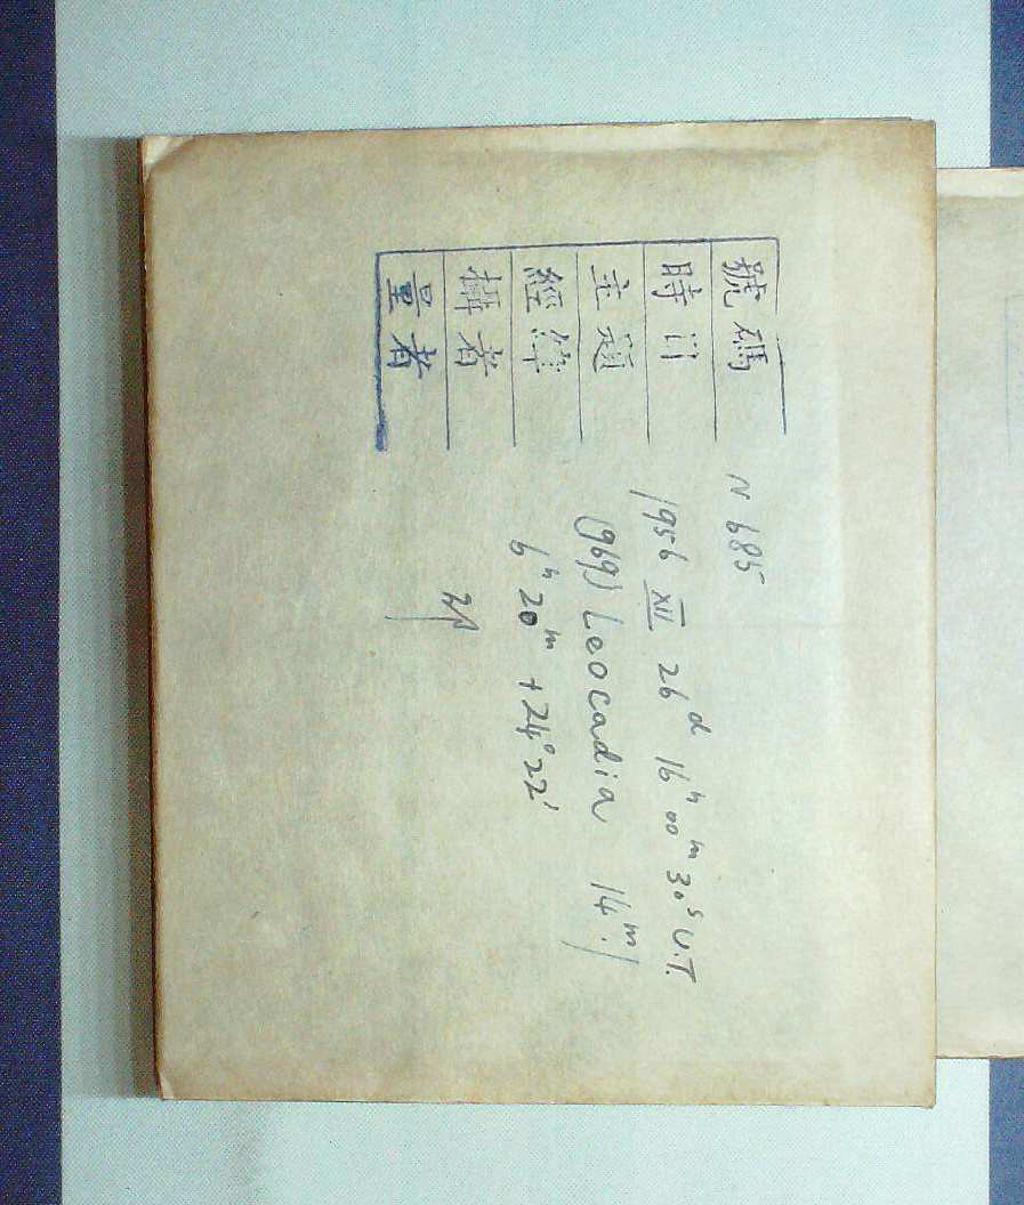 號碼 N 685
時间 1956 XII 26ᵈ 16ʰ 00ᵐ 30ˢ U.T.
主題 (969) Leocadia 14ᵐ.1
經緯 6ʰ 20ᵐ +24°22'
攝者
量者